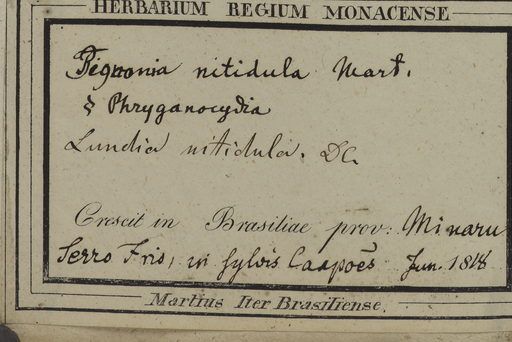 HERBARIUM REGIUM MONACENSE
Bignonia nitidula Mart.
& Phryganocydia
Lundia nitidula. DC
Crescit in Brasiliae prov: Minarum
Serro Frio, in sylvis Caapoẽs Jun. 1818
Martius Iter Brasiliense.